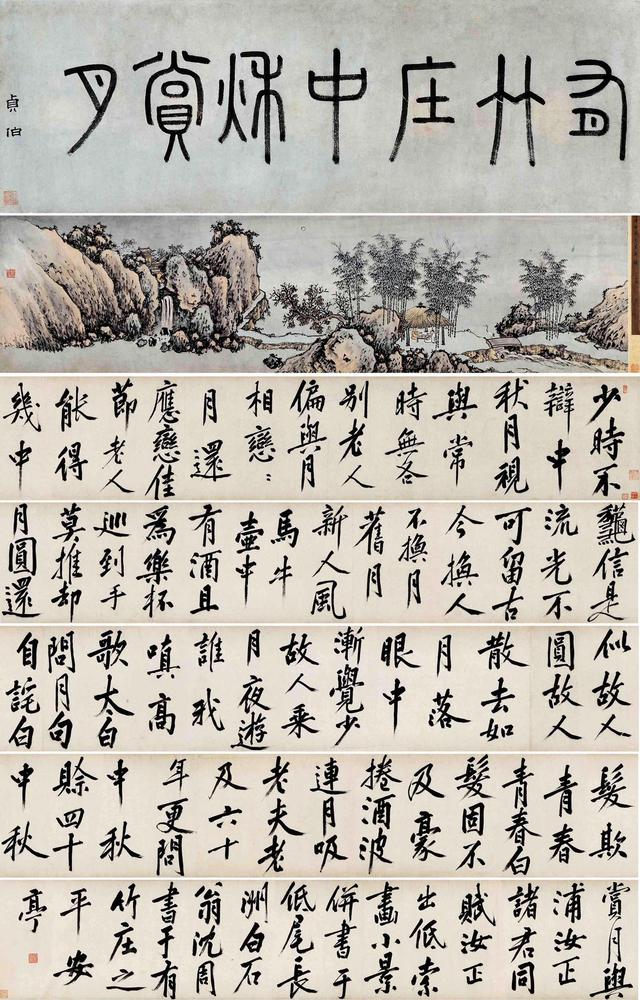 有竹庄中秋賞月
貞伯
少時不
辯中
秋月視
與常
時無各
別老人
偏與月
相戀〻
月還
應戀佳
節老人
能得
幾中
龝信是
流光不
可留古
今換人
不換月
舊月
新人風
馬牛
壺中
有酒且
為樂杯
巡到手
莫推却
月圓還
似故人
圓故人
散去如
月落
眼中
漸覺少
故人乘
月夜遊
誰我
嗔高
歌太白
問月句
自詫白
髮欺
青春
青春白
髮固不
及豪
捲酒波
連月吸
老夫老
及六十
年更問
中秋
賒四十
中秋
賞月與
浦汝正
諸君同
賦汝正
出低索
畫小景
併書于
低尾長
洲白石
翁沈周
書于有
竹庄之
平安
亭